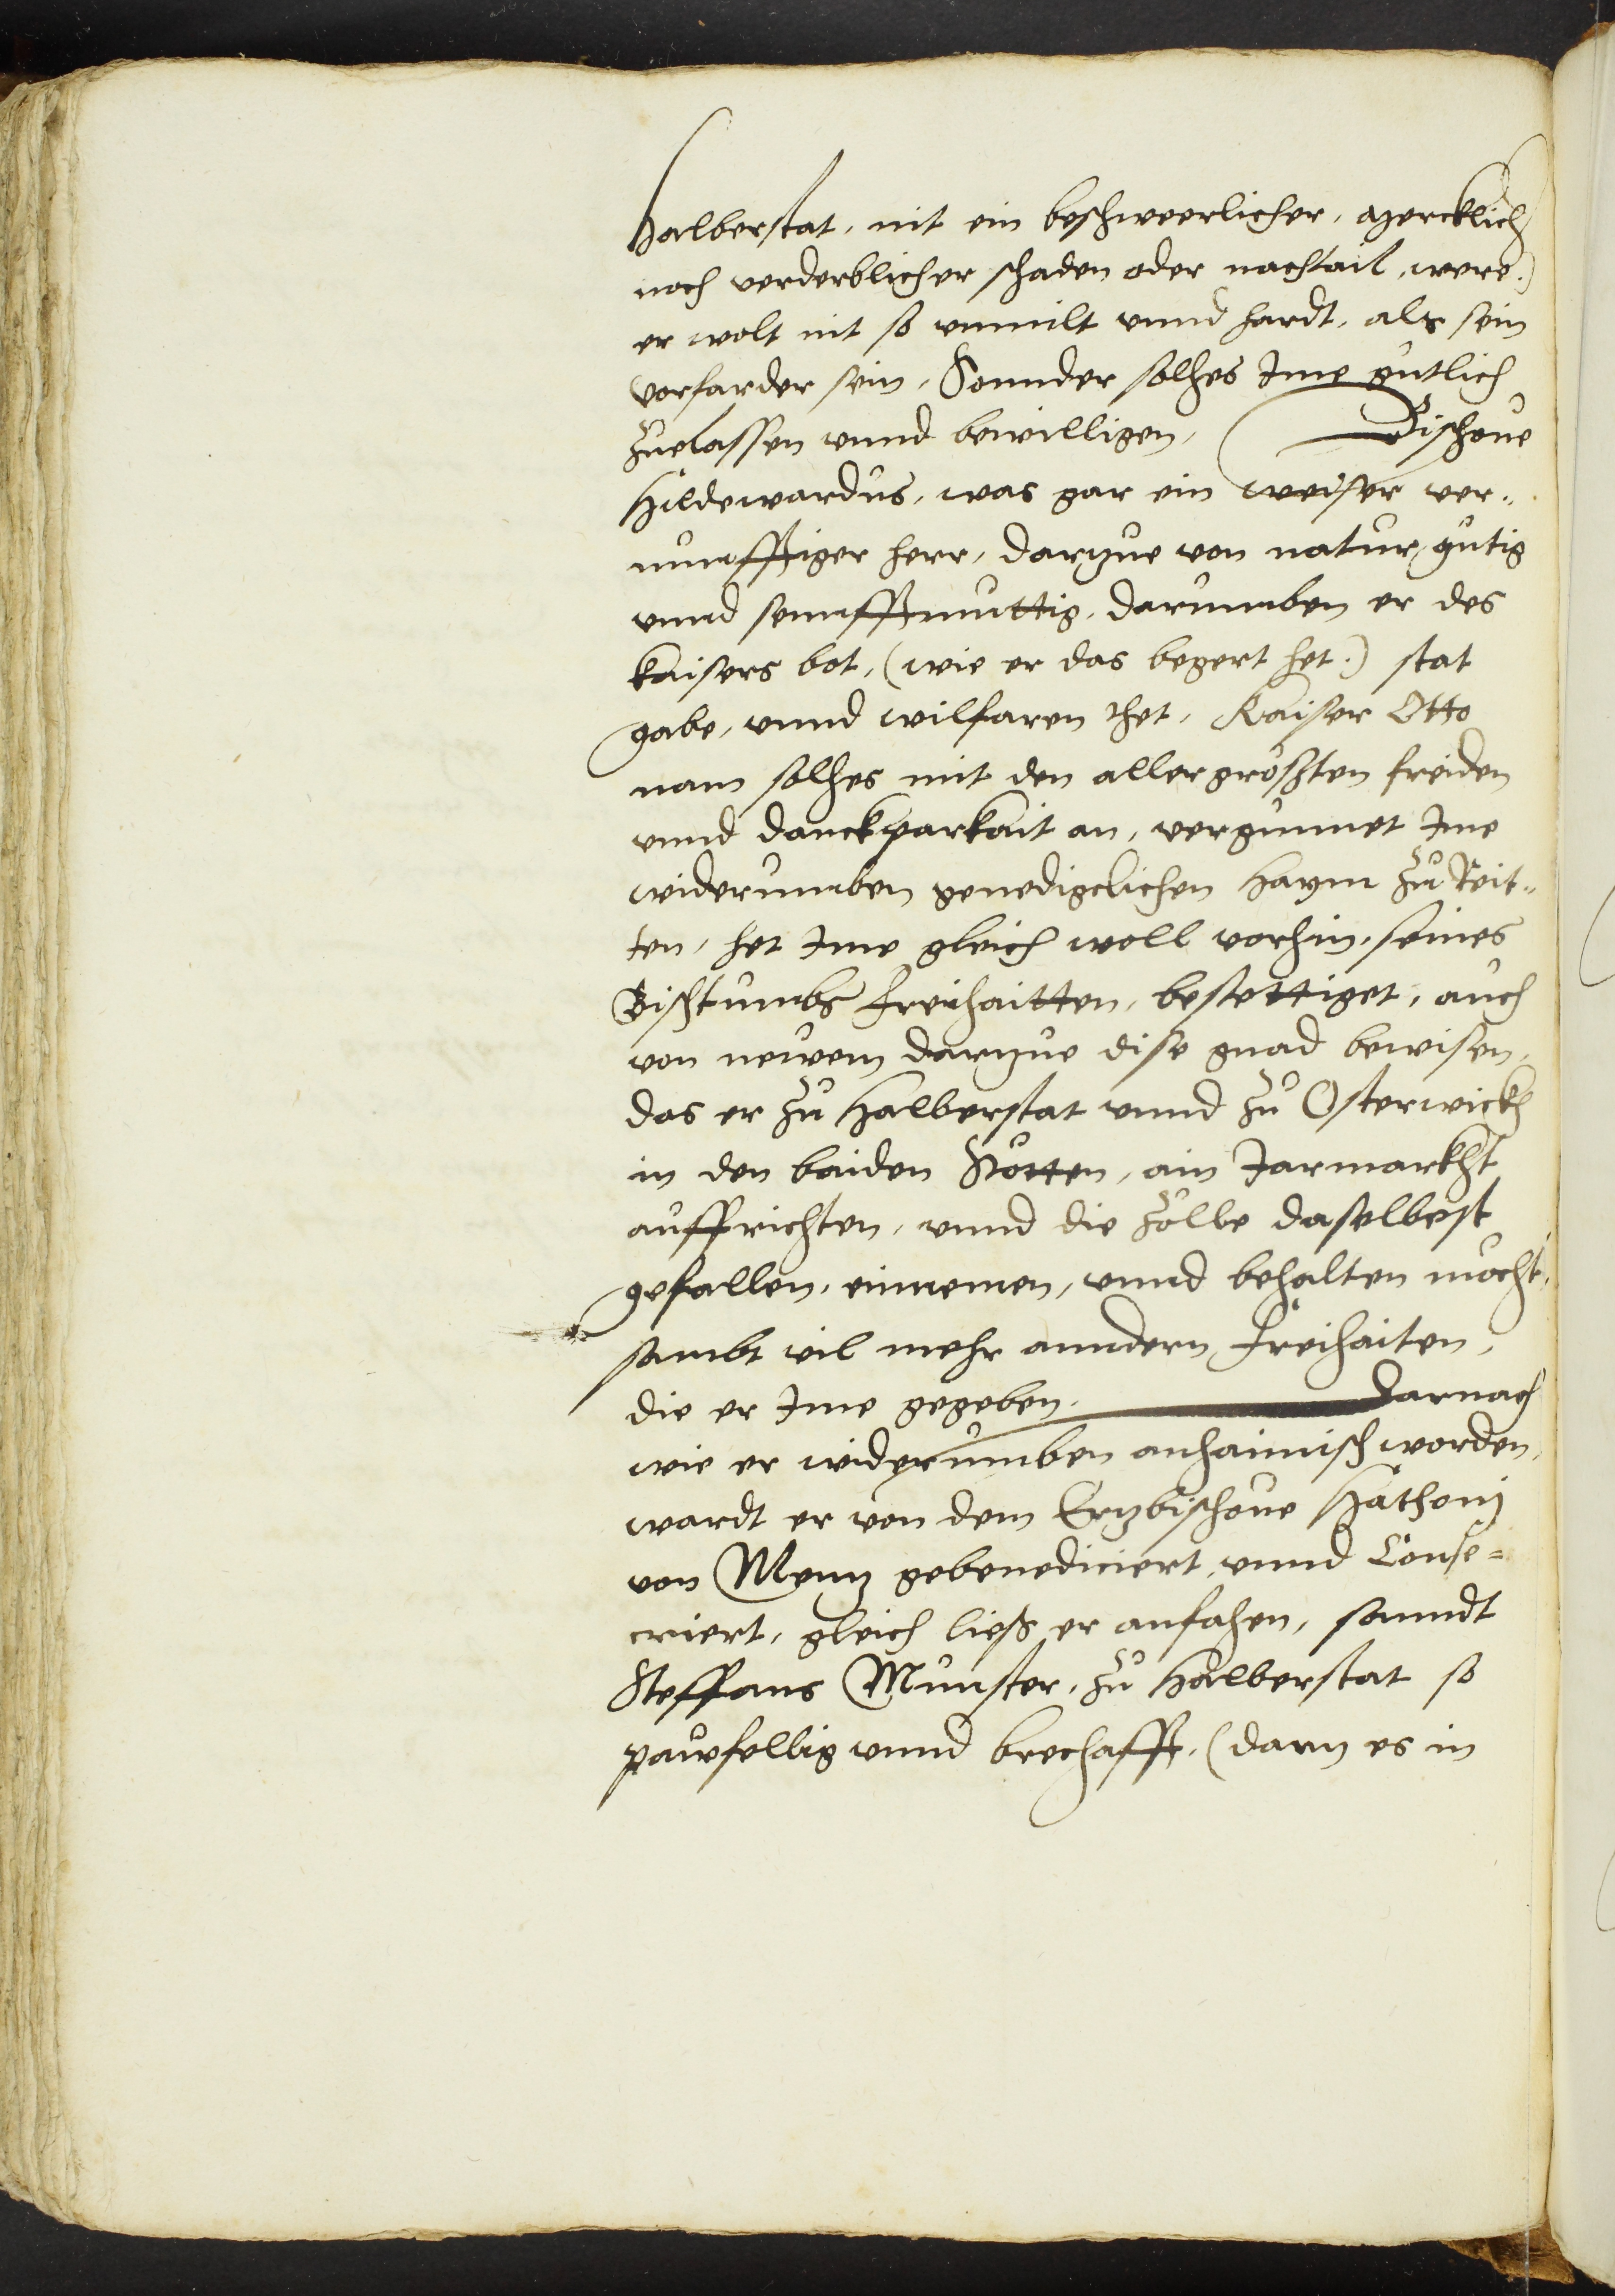 Halberstat, nit ein beschweerlicher, mercklich
noch verderblicher schaden oder nachtail, were.)
er wolt nit so vnmilt vnnd hardt, als sein
vorfarder sein, Sonnder solhes Ime gutlich
Zuelassen vnnd bewilligen, Bischoue
Hildewardus, was gar ein weiser ver„
nunfftiger herr, darzue von natur, gütig
vnnd sennfftmuttig, darumben er des
kaisers bot, (wie er das begert het.) stat
gabe, vnnd wilfaren thet, Kaiser Otto
nam solhes mit den allergrosten freiden
vnnd danckparkait an, vergunnet Ime
widerumben genedigclichen haym zu Reit„
ten, het Ime gleich woll vorhin, seines
Bistumbs freihaitten, bestettiget, auch
von newem darzue dise gnad bewisen,
das er zu Halberstat vnnd zu Osterwickh
in den baiden Stötten, ain Jarmarkht
auffrichten, vnnd die Zölle daselbest
gefallen, einnemen, vnnd behalten mocht,
sambt vil mehr anndern freihaiten,
die er Ime gegeben. Darnach
wie er widerumben anhaimisch worden,
wardt er von dem Erzbischoue Hathonj
von Menz gebenediciert, vnnd Conse=
criert, gleich ließ er anfahen, sanndt
Steffans Munster, zu Halberstat so
pawfellig vnnd brechafft, (darn es in